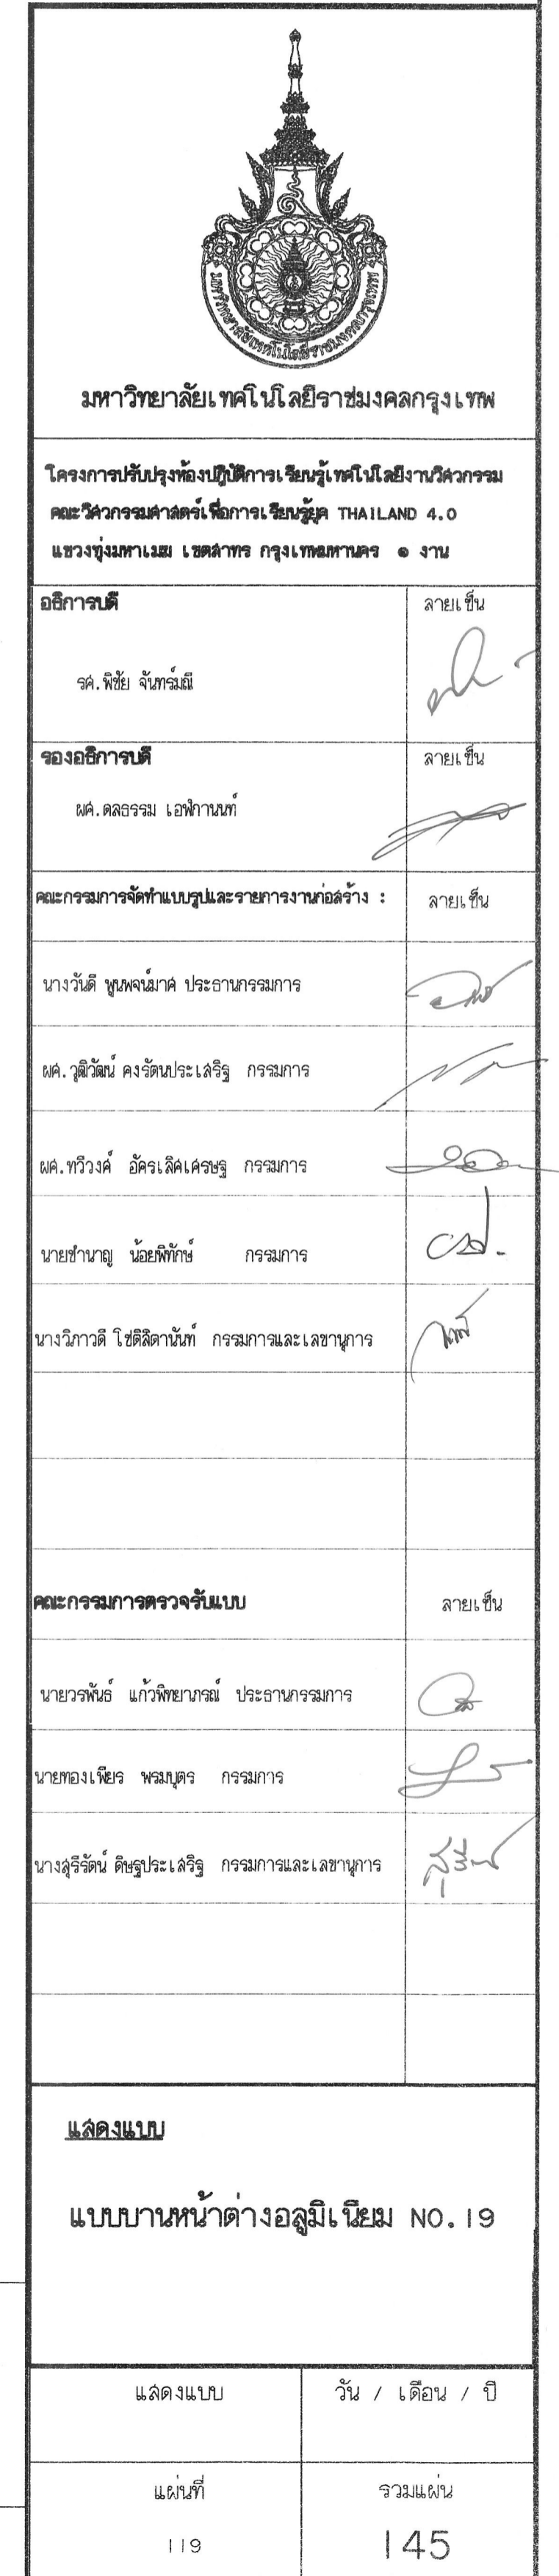 มหาวิทยาลัยเทคโนโลยีราชมงคลกรุงเทพ
มหาวิทยาลัยเทคโนโลยีราชมงคลกรุงเทพ
โครงการปรับปรุงห้องปฏิบัติการเรียนรู้เทคโนโลยีงานวิศวกรรม
คณะวิศวกรรมศาสตร์เพื่อการเรียนรู้ยุค THAILAND 4.0
แขวงทุ่งมหาเมฆ เขตสาทร กรุงเทพมหานคร ๑ งาน
อธิการบดี ลายเซ็น
รศ.พิชัย จันทร์มณี
รองอธิการบดี ลายเซ็น
ผศ.ดลธรรม เอฬกานนท์
คณะกรรมการจัดทำแบบรูปและรายการงานก่อสร้าง : ลายเซ็น
นางวันดี พูนพจน์มาศ ประธานกรรมการ
ผศ.วุฒิวัฒน์ คงรัตนประเสริฐ กรรมการ
ผศ.ทวีวงศ์ อัครเลิศเศรษฐ กรรมการ
นายชำนาญ น้อยพิทักษ์ กรรมการ
นางวิภาวดี โชติลิตานันท์ กรรมการและเลขานุการ
คณะกรรมการตรวจรับแบบ ลายเซ็น
นายวรพันธ์ แก้วพิทยาภรณ์ ประธานกรรมการ
นายทองเพียร พรมบุตร กรรมการ
นางสุรีรัตน์ ดิษฐประเสริฐ กรรมการและเลขานุการ
สุรีรัตน์
แสดงแบบ
แบบบานหน้าต่างอลูมิเนียม NO.19
แสดงแบบ วัน / เดือน / ปี
แผ่นที่ รวมแผ่น
119 145